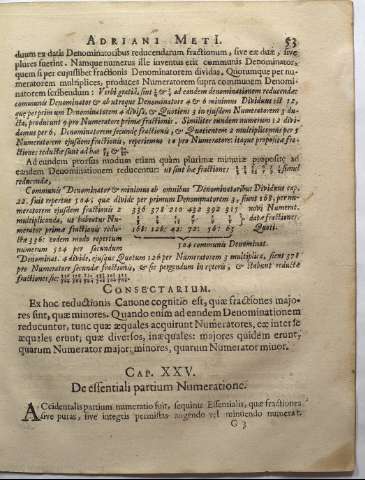 ADRIANI METI. 53
duum ex datis Denominatoribus reducendarum fractionum, sive ex datæ, sive
plures fuerint. Namque numerus ille inventus erit communis Denominator,
quem si per cujuslibet fractionis Denominatorem dividas, Quotumque per nu-
meratorem multiplices, produces Numeratorem supra communem Denomi-
natorem scribendum: Verbi gratiâ, sint & ad eandem denominationem reducendæ:
communis Denominator & ab utroque Denominatore 4 & 6 minimus Dividuus est 12,
quo per primum Denominatorem 4 diviso, & Quotiens 3 in ejusdem Numeratorem 3 du-
cto, producunt 9 pro Numeratore primæ fractionis. Similiter eundem numerum 12 divi-
damus per 6, Denominatorem secundæ fractionis, & Quotientem 2 multiplicemus per 5
Numeratorem ejusdem fractionis, reperiemus 10 pro Numeratore: itaque propositæ fra-
ctiones reductæ sunt ad has &
Ad eundem prorsus modum etiam quàm plurimæ minutiæ propositæ ad
eandem Denominationem reducentur: ut sunt hæ fractiones simul
reducendæ,
Communis Denominator & minimus ab omnibus Denominatoribus Dividuus cap.
22. fuit repertus 504, quo divide per primum Denominatorem 3, sunt 168, per nu-
meratorem ejusdem fractionis 2 336 378 210 432 392 315 novi Numerat.
multiplicanda, ut habeatur Nu- datæ fractiones.
merator primæ fractionis redu- 168: 126: 42: 72: 56: 63 Quoti.
ctæ 336: eodem modo repertum
numerum 504 per secundum 504 communis Denominat.
Denominat. 4 divide, ejusque Quotum 126 per Numeratorem 3 multiplica, fient 378
pro Numeratore secundæ fractionis, & sic pergendum in ceteris, & stabunt reductæ
fractiones sic:
CONSECTARIUM.
Ex hoc reductionis Canone cognitio est, quæ fractiones majo-
res sint, quæ minores. Quando enim ad eandem Denominationem
reducuntur, tunc quæ æquales acquirunt Numeratores, eæ inter se
æquales erunt; quæ diversos, inæquales: majores quidem erunt,
quarum Numerator major; minores, quarum Numerator minor.
CAP. XXV.
De essentiali partium Numeratione.
ACcidentalis partium numeratio fuit, sequitur Essentialis, quæ fractiones
sive puras, sive integris permistas augendo vel minuendo numerat.
G 3